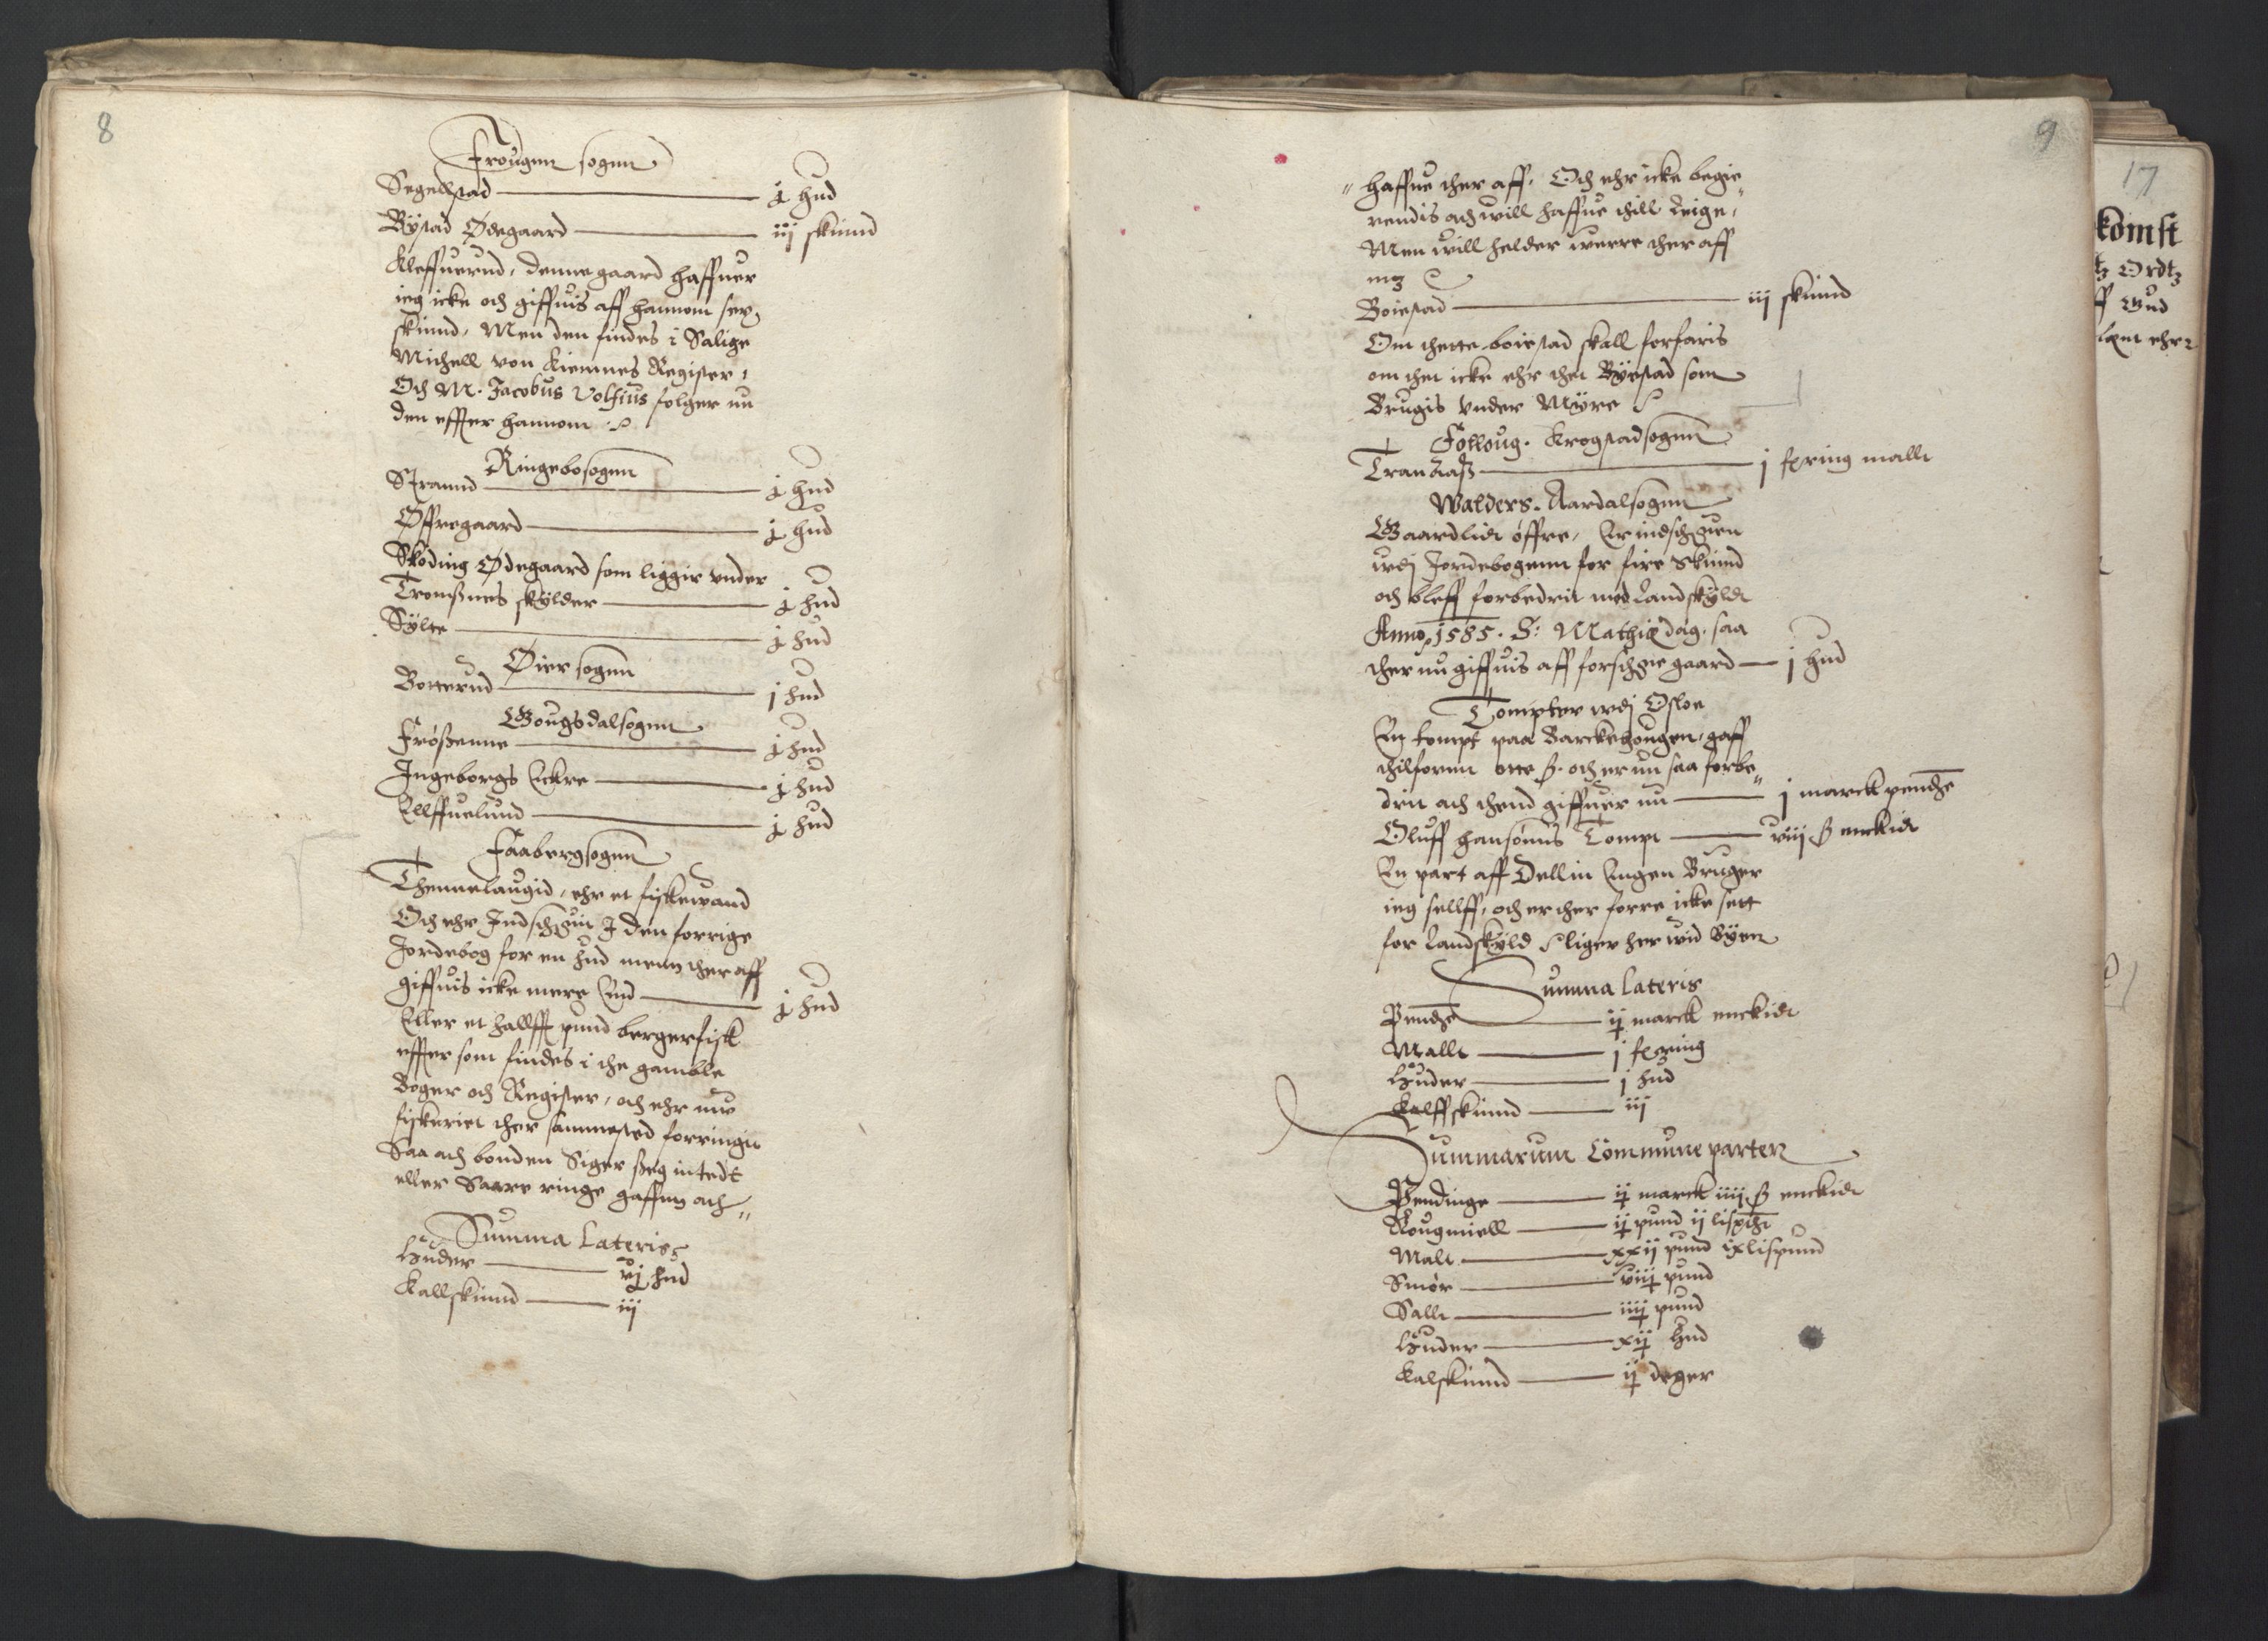 8
Frougnn sognn
Segellstad j hud
Bystad Ødegaard iij skiind
Kleffuerud, denne gaard haffuer
ieg icke och giffuis aff hannom sex
skiind, Men den findes i Salige
Michell von Kiemnes Register,
Och M. Jacobus Volfius folger nu
den effter hannom
Ringebosognn
Strannd j hud
Øffregaard j hud
Skoding Ødegaard som liggir vnder
Tromßnes skylder j hud
Sylte j hud
Øier sognn
Botterud j hud
Gougsdalsognn
Frößenne j hud
Ingeborgs Eckre j hud
Ellffuelund j hud
Faabergsognn
Thennelaugid, ehr et fiskevand
Och ehr Indschreuit I den forrige
Jordebog for en hud menn ther aff
giffuis icke mere End j hud
Eller et hallfft pund bergerfisk
effter som findes i the gamble
Bøger och Register, och ehr nuv
fiskeriet ther sammested forringit
Saa ath bonden Siger ßeg intedt
eller Saare ringe gaffnn ath
Summa Lateris
Huder vj hud
Kallskiind iij
9
haffue ther aff, Och ehr icke begie
rendis ath will haffue thill Leige,
Men will helder verre ther aff
mz
Boiestad iij skiind
Om thette boiestad skall forfaris
om thet icke ehr thet Byestad som
Brugis vnder Myre
Folloug. Krogstadsognn
Tranaaß j fering mallt
Walders. Aardalsognn
Gaardlidt øffre, Er indschreuen
vdj Jordebogenn for fire Skiind
och bleff forbedrit med Landskyldt
Anno 1585. S: Mathiæ dag. saa
ther nu giffuis aff forschreuene gaard j hud
Tompter vdj Osloe
En tompt paa Barckehougen, gaff
thilfornn otte ß. och er nu saa forbe
drit ath thend giffuer nu j marck pendge
Oluff hansønns Tompt viij ß enckidt
En part aff Dellin Engen Bruger
ieg sellff, och er ther forre icke sett
for Landskyld liger her wid Byen
Summa Lateris
Pendge ij marck enckidt
Mallt j fering
Huder j hud
Kalffskiind iij
Summarum Commune parten
Pendinge ij marck iiij ß enckidt
Rougmiell ij pund ij lispund
Malt xxij pund ix lispund
Smør viij pund
Sallt iiij pund
Huder xij Hud
Kalskiind ij deger
17
komst
Ordtz
ff Gud
ehr